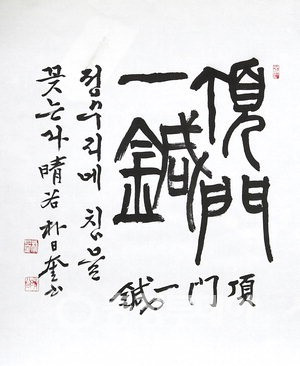 頂門
一鍼
頂門一鍼
정수리에 침을
꽂는다 晴谷 朴日奎 書